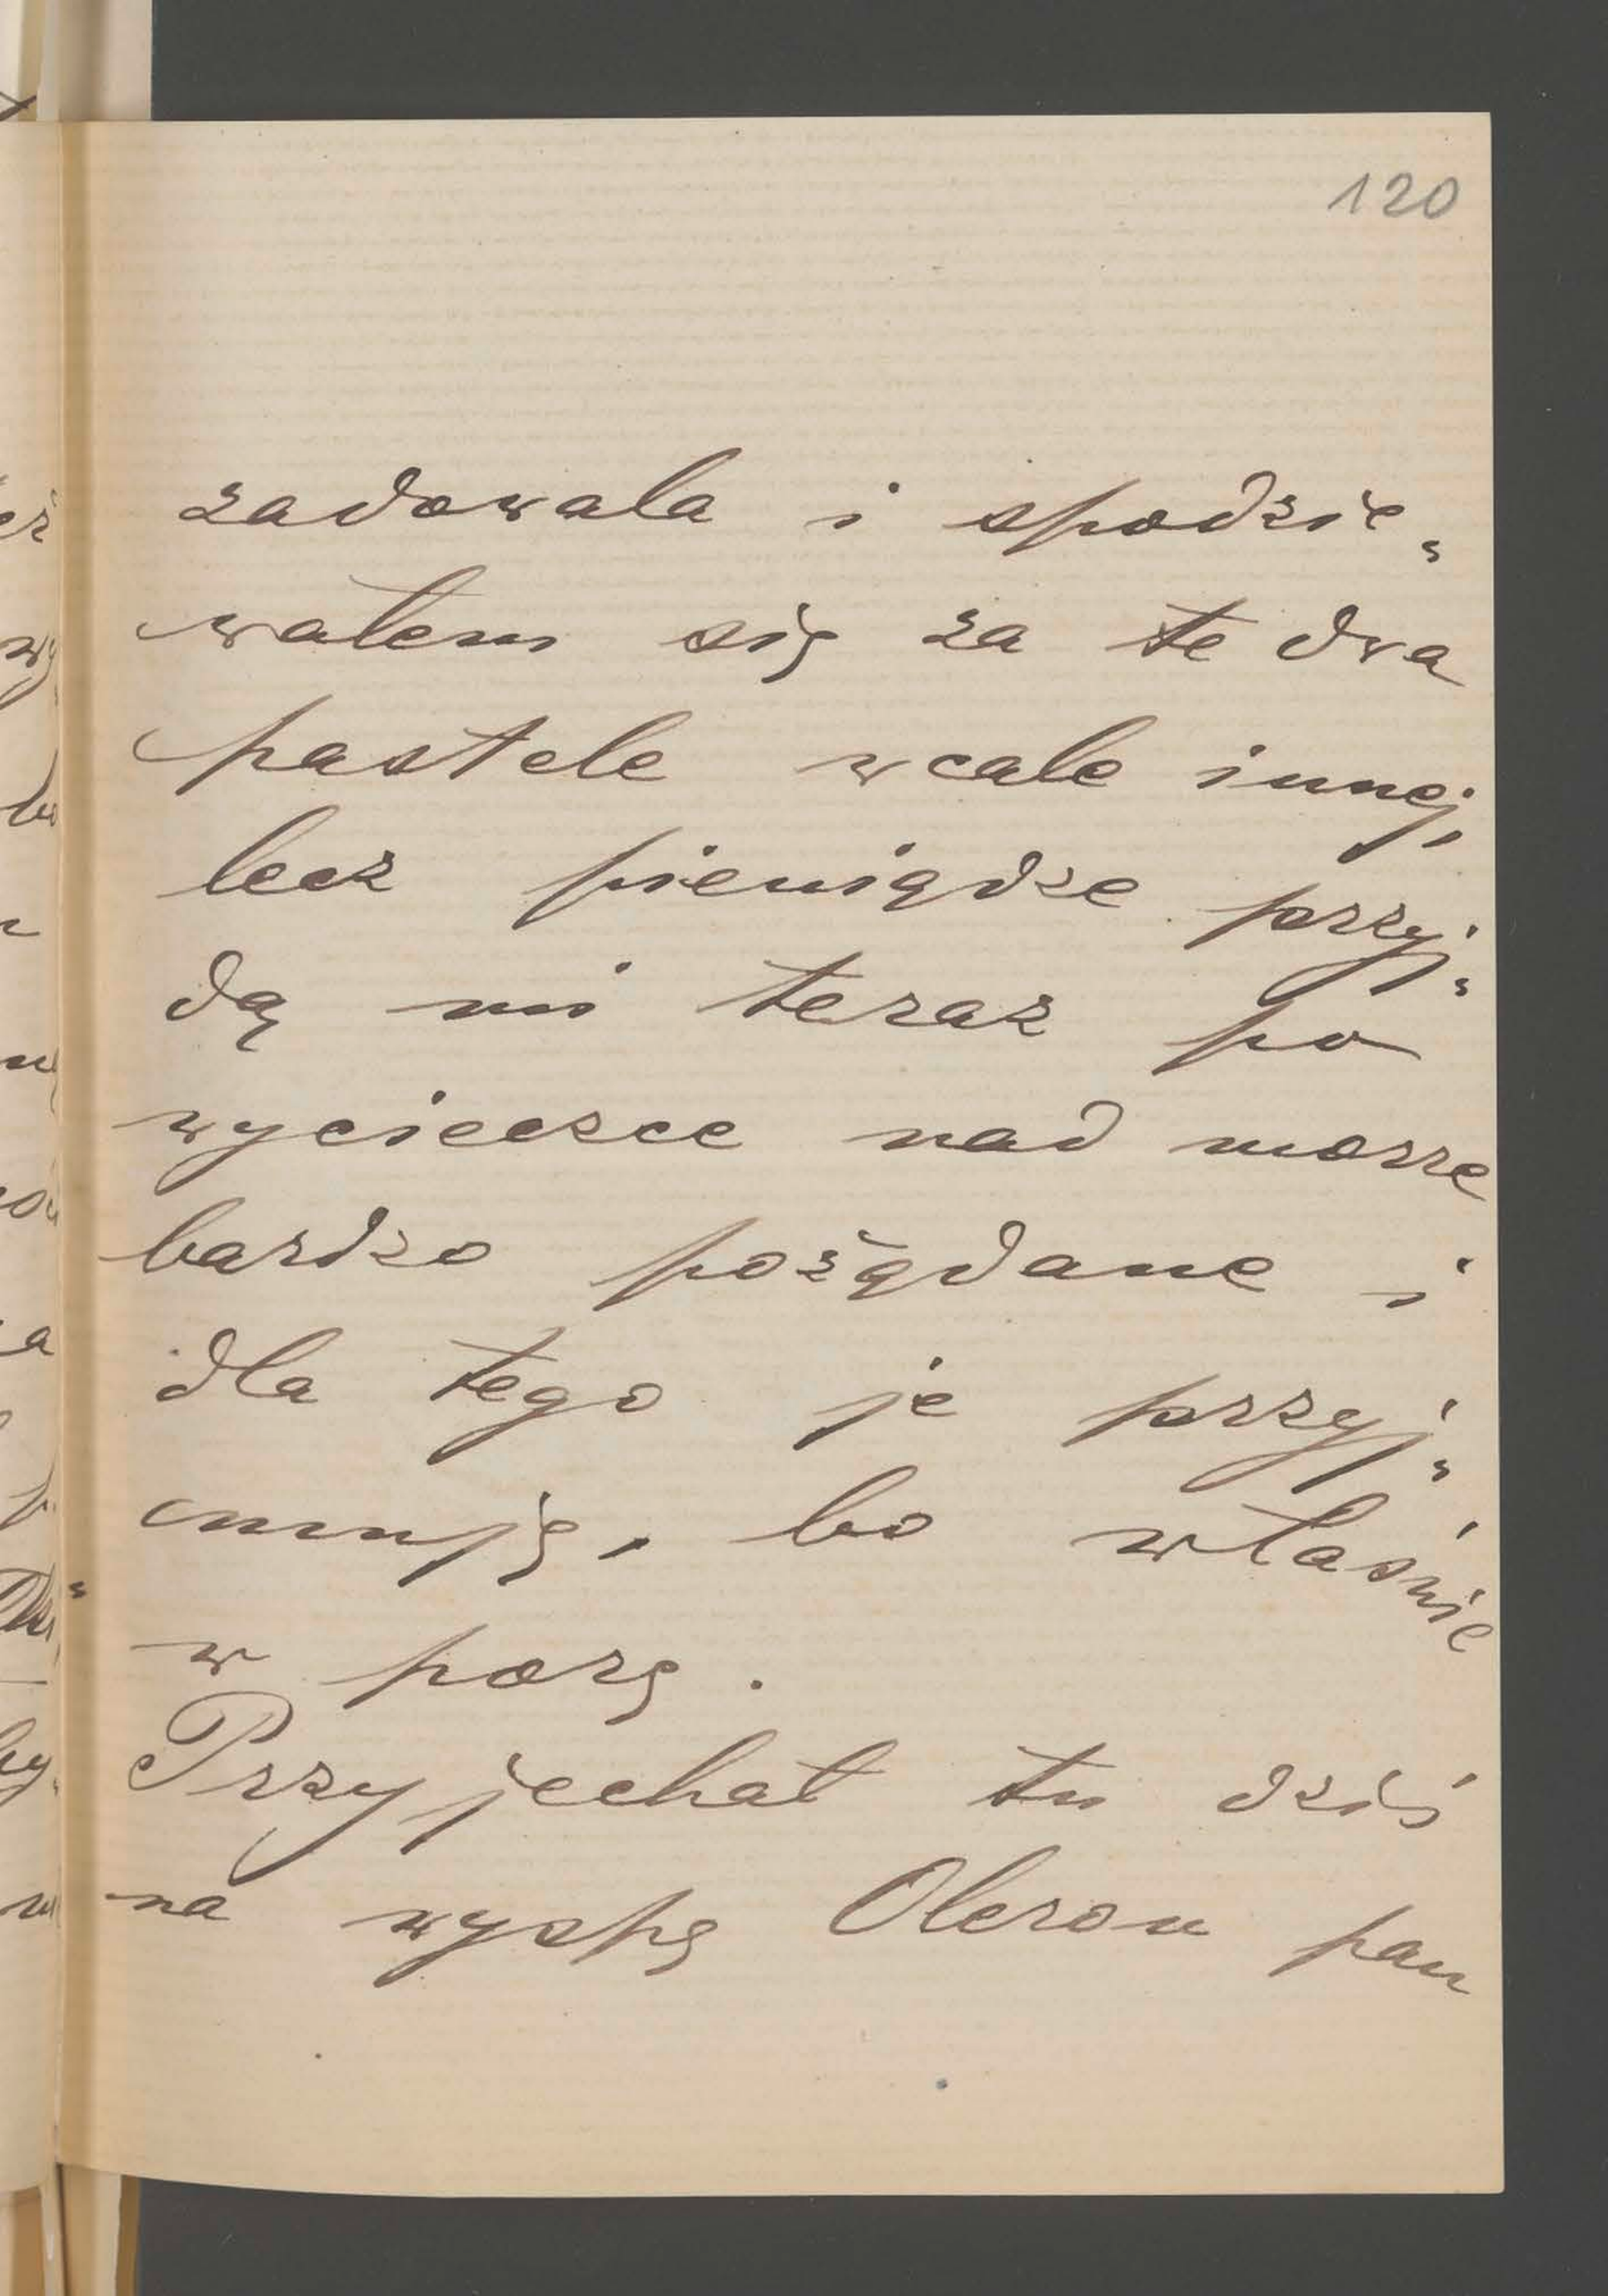 120
zadowala i spodzie„
wałem się za te dwa
pastele wcale innej,
lecz pieniądze przyj„
dą mi teraz po
wycieczce nad morze
bardzo pożądane i
dla tego je przyj„
muję, bo właśnie
w porę.
Przyjechał tu dziś
na wyspę Oleron pan